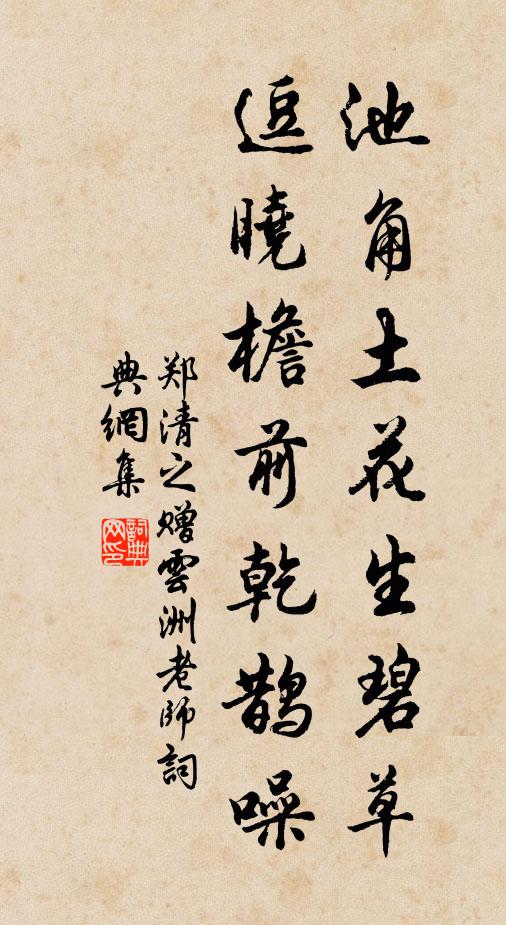 池角土花生碧草
逗曉檐前乾鹊噪
郑清之赠雲洲老師詞
典網集
詞典网印